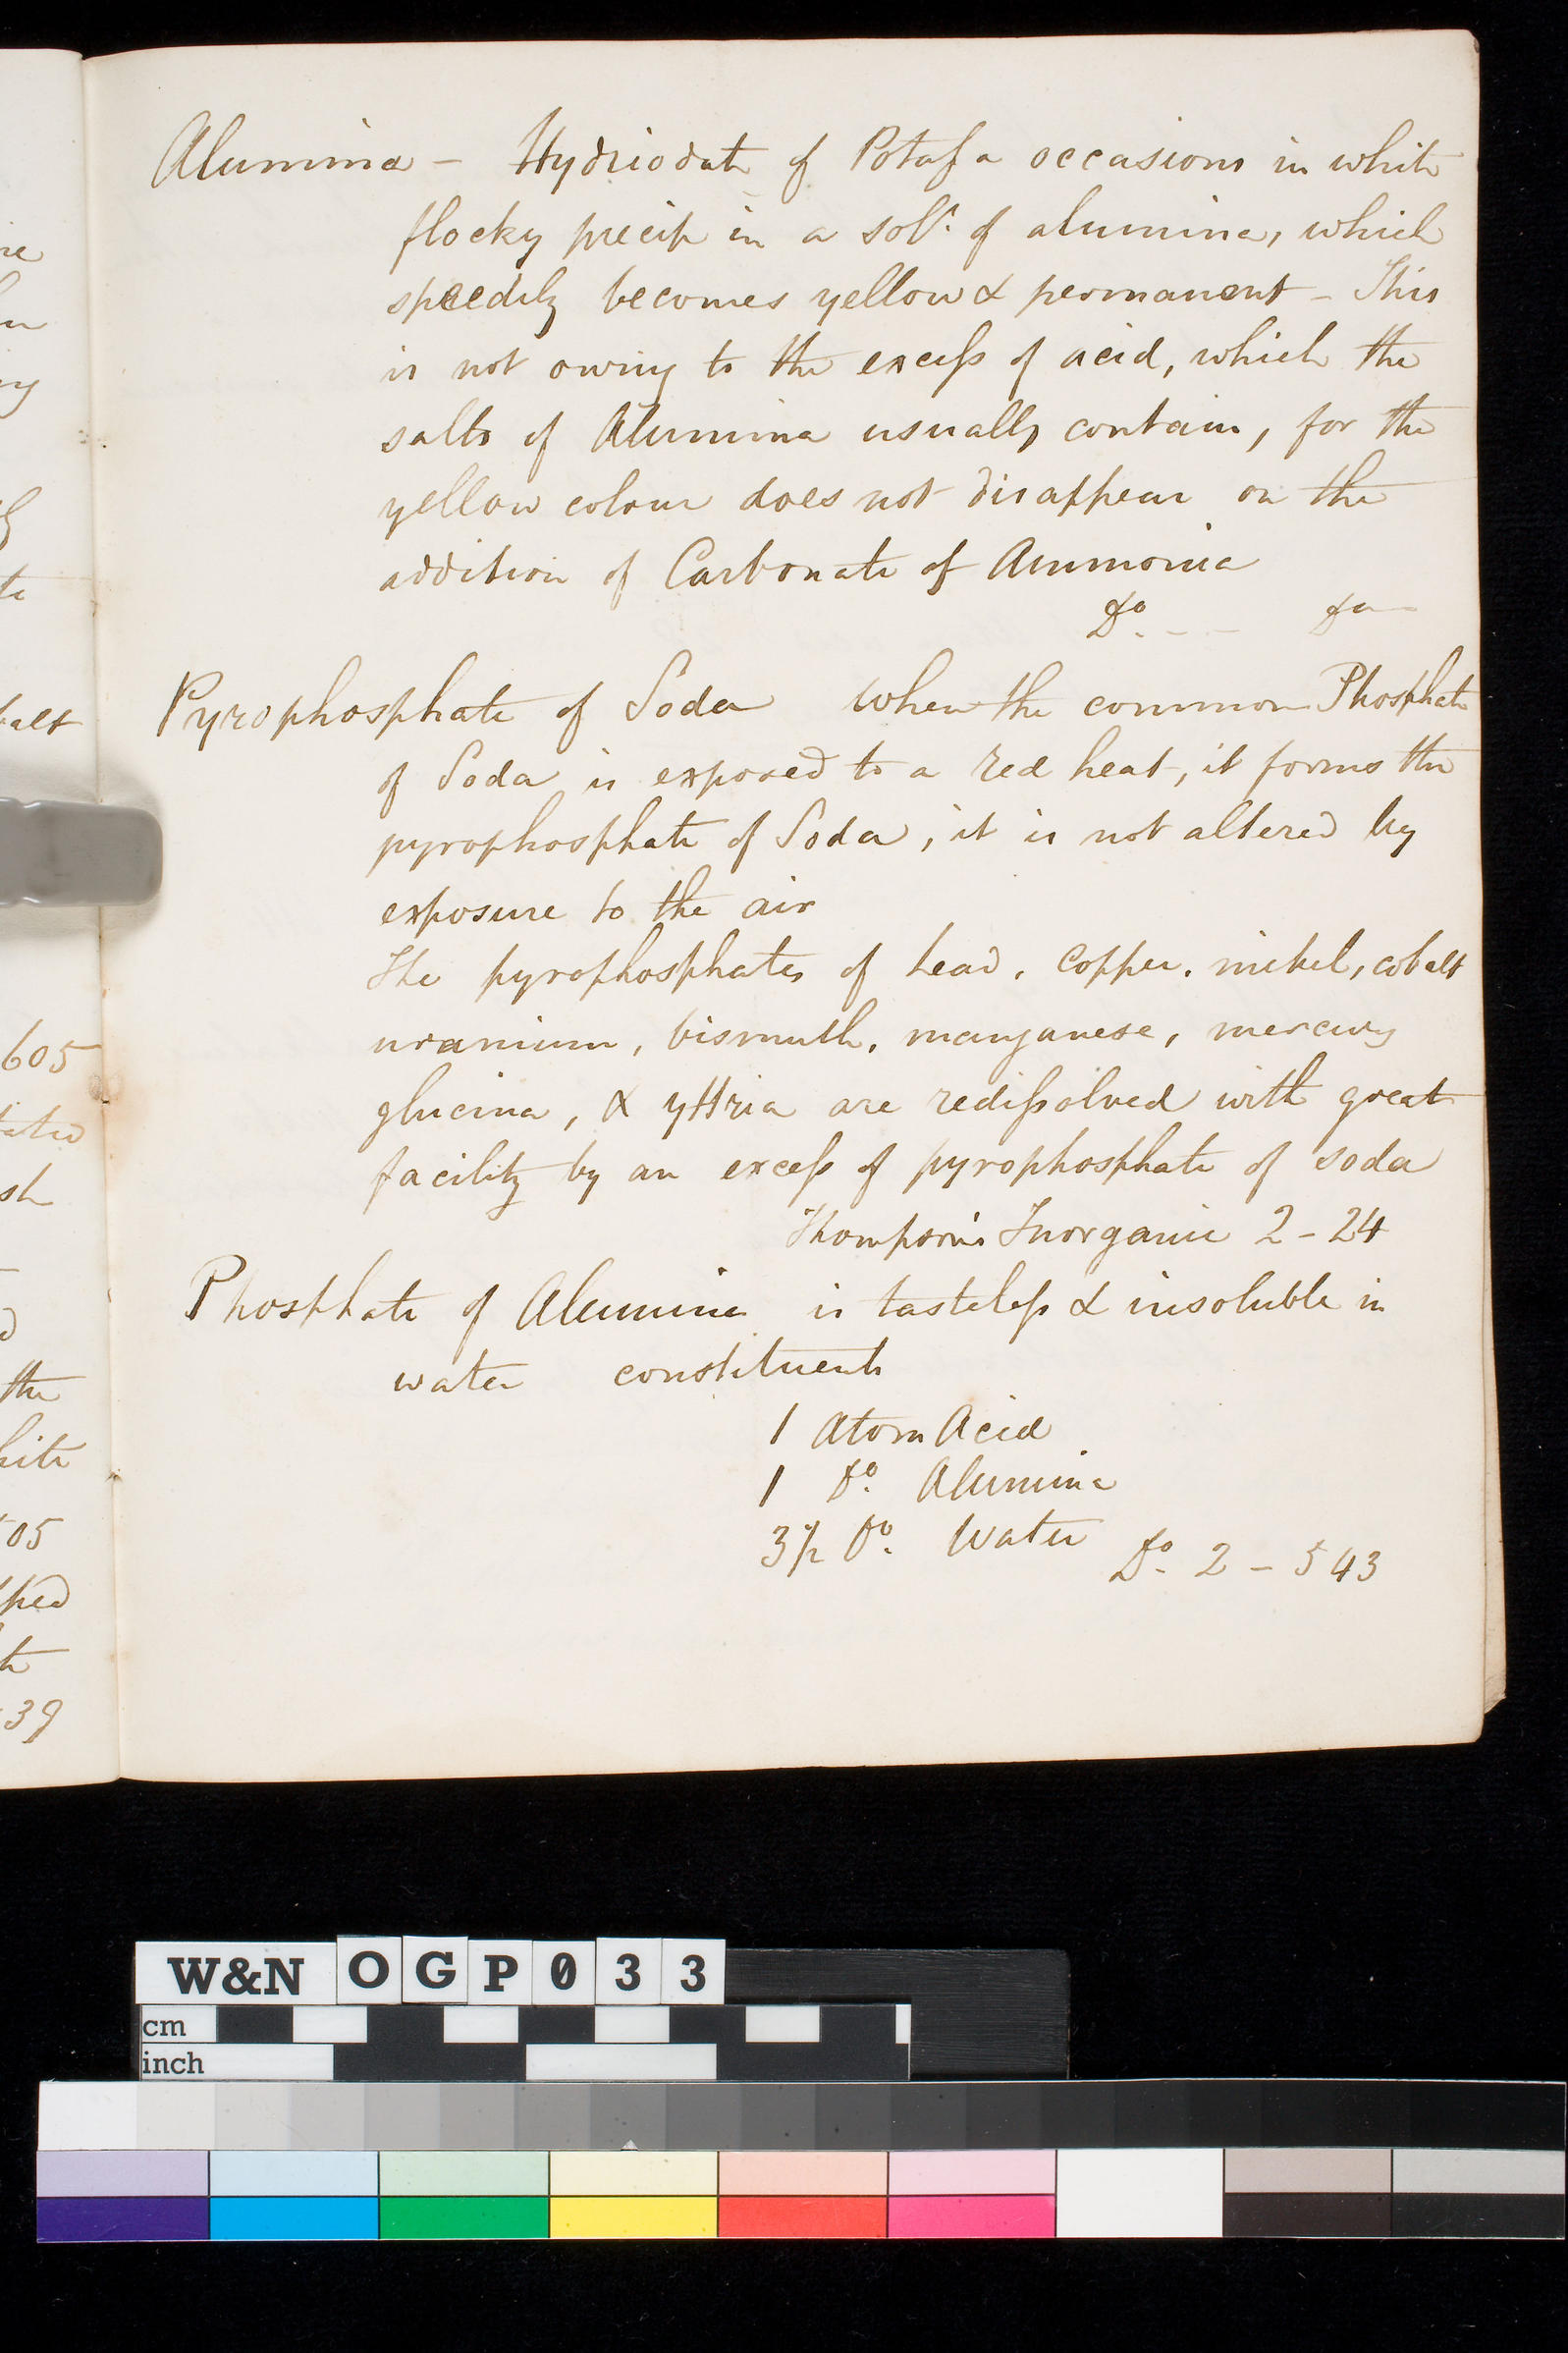 Alumina – Hydriodate of Potassa occasions in white
flocky precip in a solⁿ. of alumina, which
speedily becomes yellow & permanent – This
is not owing to the excess of acid, which the
salts of Alumina usually contain, for the
yellow colour does not disappear on the
addition of Carbonate of Ammonia
Dº. – – do
Pyrophosphate of Soda when the common Phosphate
of Soda is exposed to a red heat, it forms the
pyrophosphate of Soda, it is not altered by
exposure to the air
The pyrophosphates of lead, copper, nickel, cobalt
uranium, bismuth, manganese, mercury
glucina, & yttria are redissolved with great
facility by an excess of pyrophosphate of soda
Thompson's Inorganic 2 – 24
Phosphate of Alumina is tasteless & insoluble in
water constituents
1 Atom Acid
1 dº. Alumina
3½ dº. Water Dº. 2 – 543
605
sh
the
05
39
W&N OGP033
cm
inch